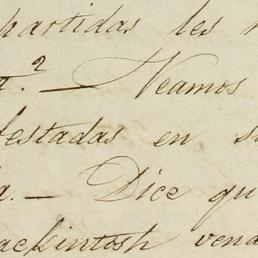 partidas les
2 — Veamos
festadas en su
a. — Dice qu
ackintosh vend